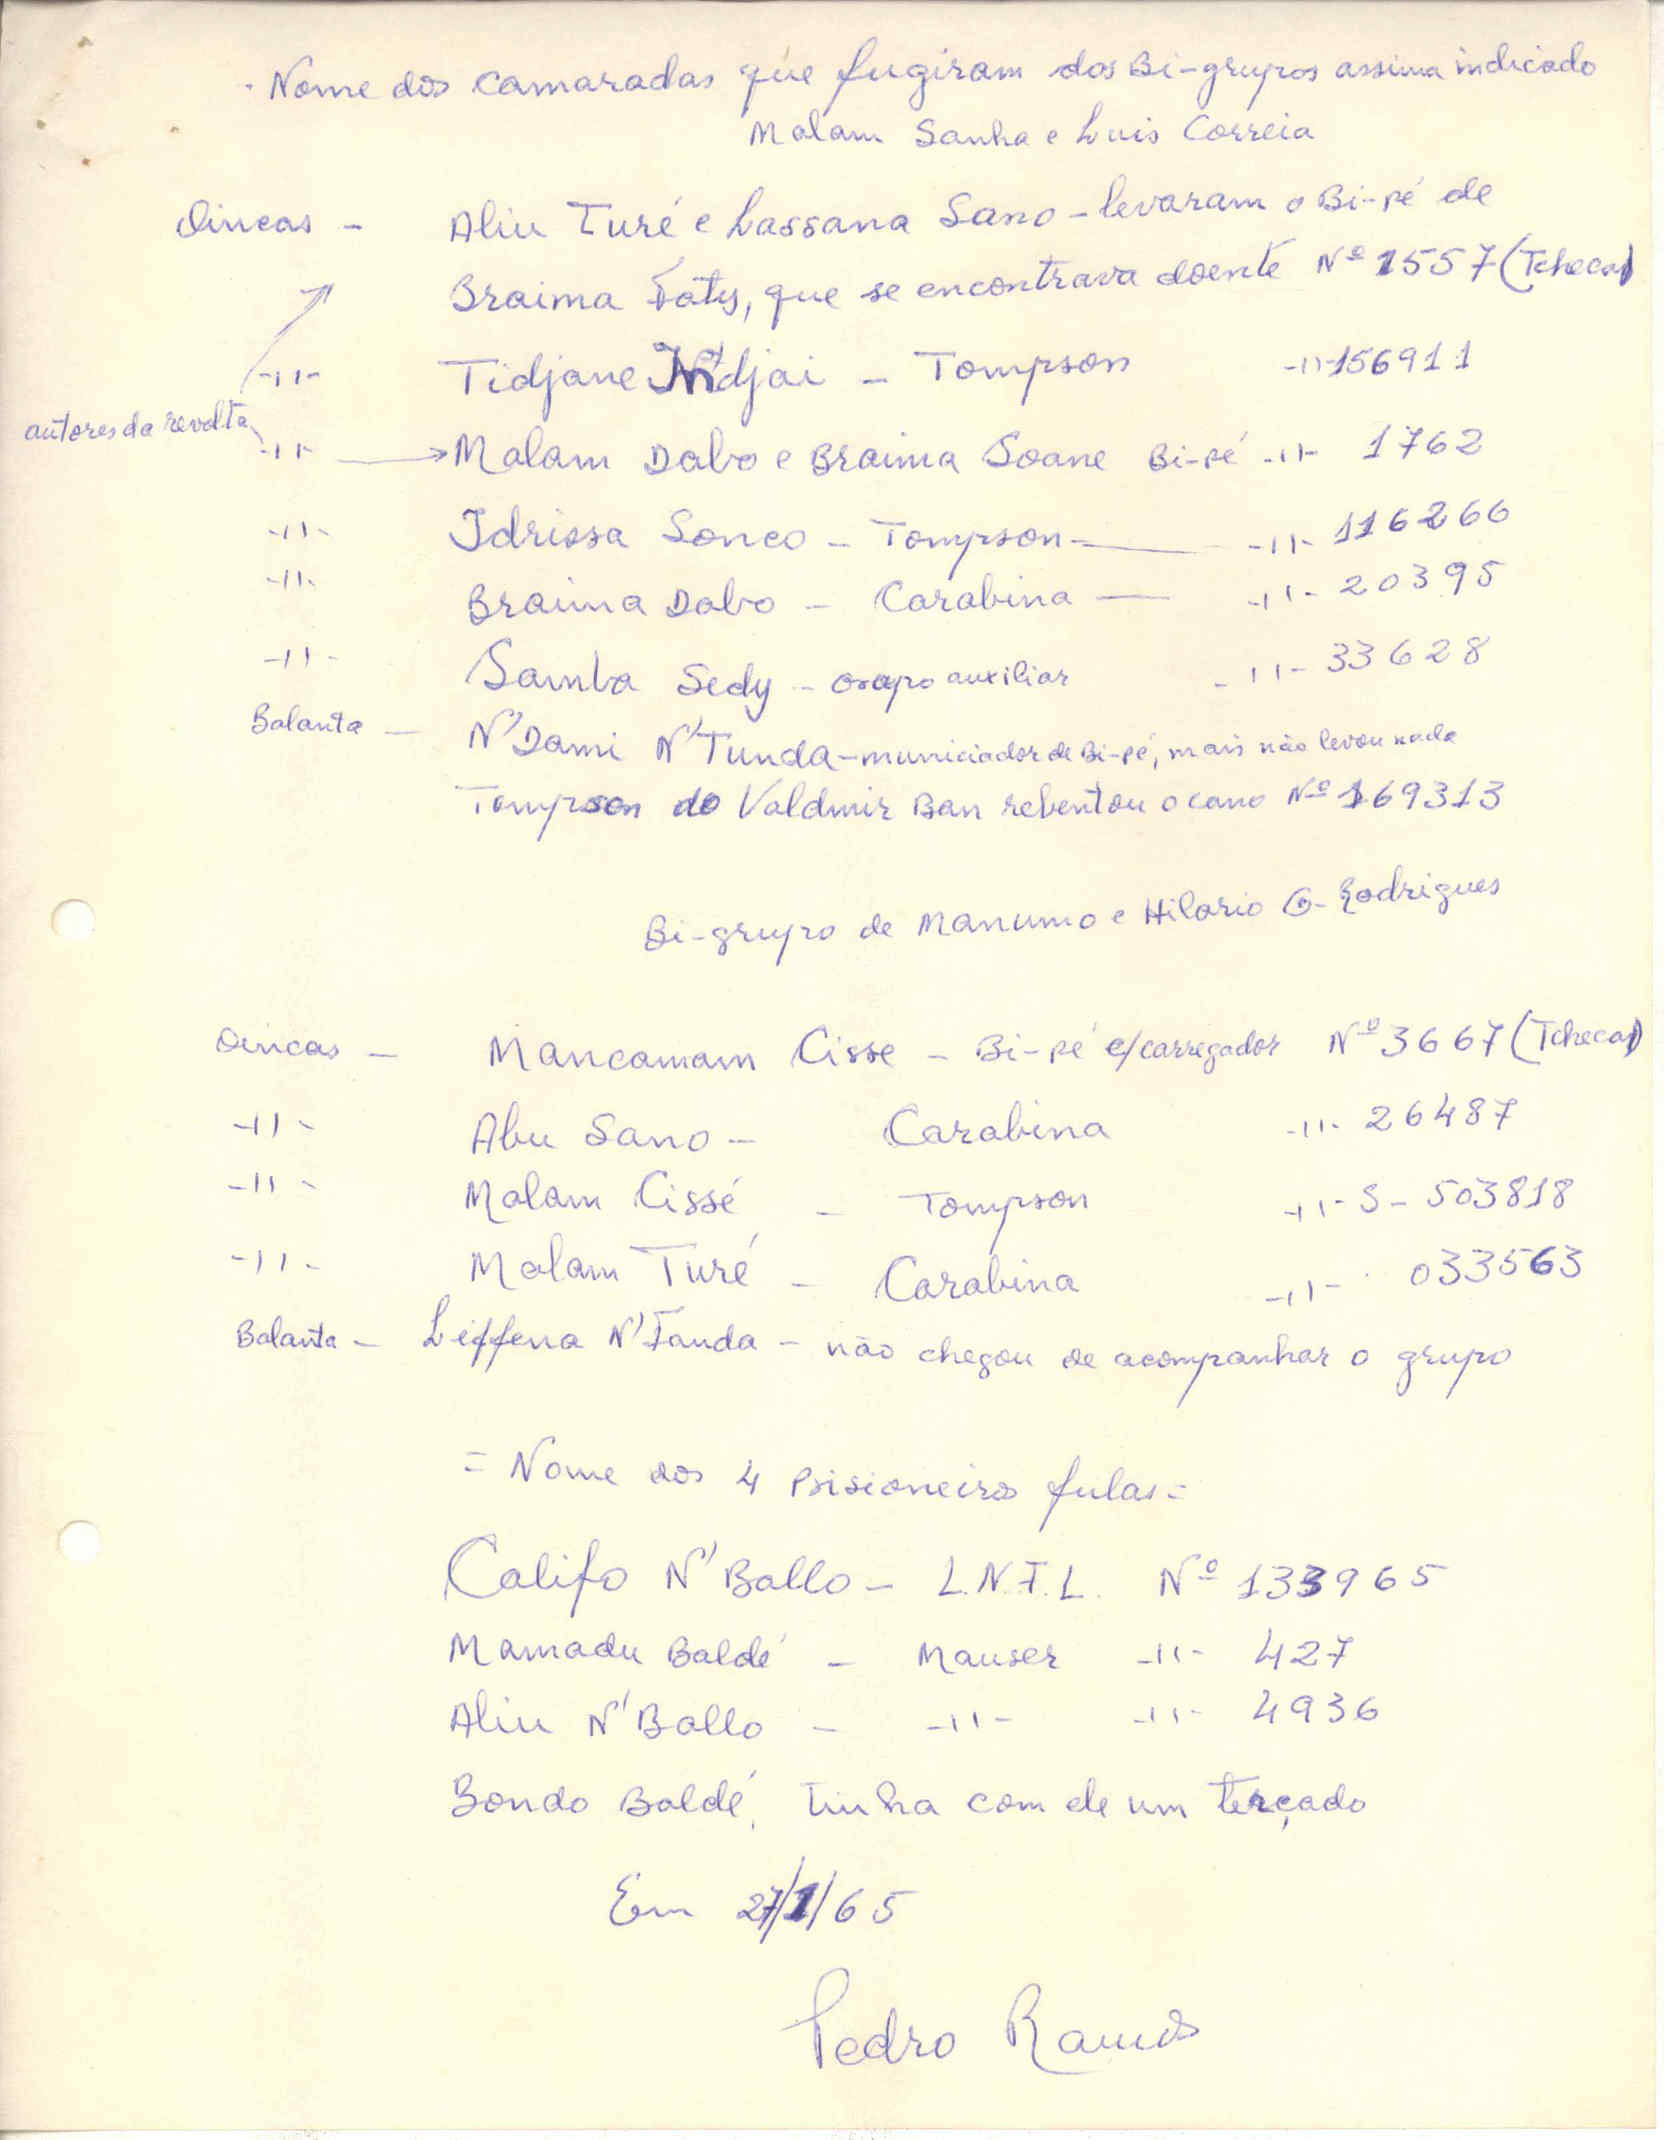 Nome dos camaradas que fugiram dos Bi-grupos assima indicado
Malam Sanha e Luis Correia
Oincas - Aliu Turé e Lassana Sano - levaram o Bi-pé de
Braima Faty, que se encontrava doente Nº 1557 (Thecas)
-11- Tidjane N'djai - Tompson -11- 156911
autores da revolta
-11- Malam Dabo e Braima Soane Bi-pé -11- 1762
-11- Idrissa Sonco - Tompson - -11- 116266
-11- Braima Dabo - Carabina - -11- 20395
-11- Samba Sedy - Grupo auxiliar -11- 33628
Balanta - N'Dami N'Tunda - municiador de Bi-pé, mais não levou nada
Tompson do Valdmir Ban rebentou o cano Nº 169313
Bi-grupo de Manumo e Hilario G. Rodrigues
Oincas - Mancamam Cisse - Bi-pé c/carregador Nº 3667 (Thecas)
-11- Abu Sano - Carabina -11- 26487
-11- Malam Cissé - Tompson -11- S - 503818
-11- Malam Turé - Carabina -11- 033563
Balanta - Leffena N'Fanda - não chegou de acompanhar o grupo
= Nome dos 4 Prisioneiros fulas =
Califo N'Ballo - L.N.F.L. Nº 133965
Mamadu Baldé - Mauser -11- 427
Aliu N'Ballo - -11- -11- 4936
Bondo Baldé, tinha com ele um terçado
Em 27/1/65
Pedro Ramos